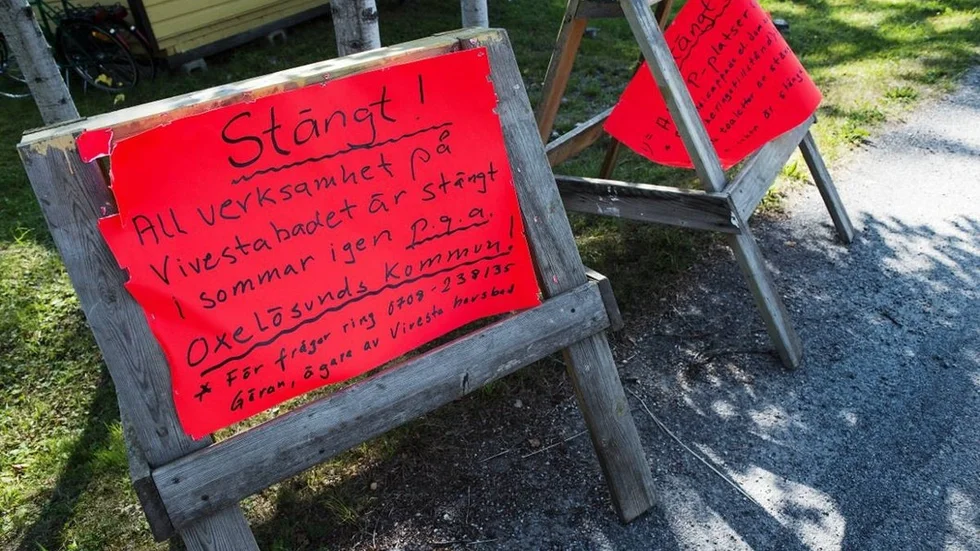 Stängt!
All verksamhet på
Vivestabadet är stängt
i sommar igen p.g.a.
Oxelösunds kommun!
* För frågor ring 0708-238135
Göran, ägare av Vivesta havsbad
Stängt
P-platser